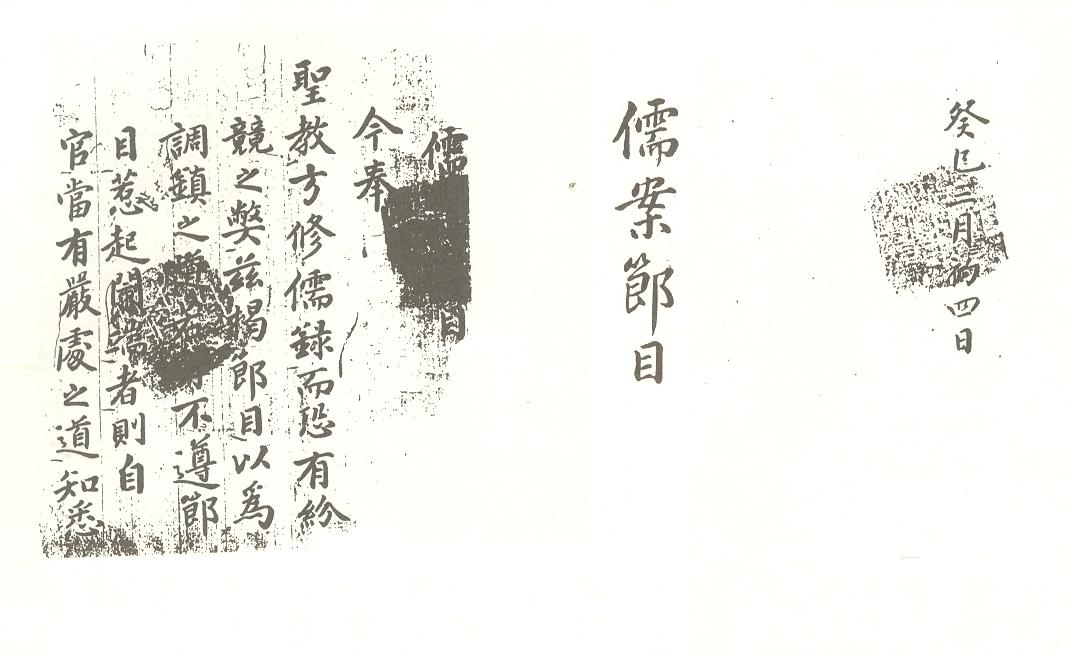 癸巳三月初四日
儒案節目
儒 目
今奉
聖教方修儒錄而恐有紛
競之獘玆揭節目以爲
調鎭之 不遵節
目惹起鬧端者則自
官當有嚴處之道知悉